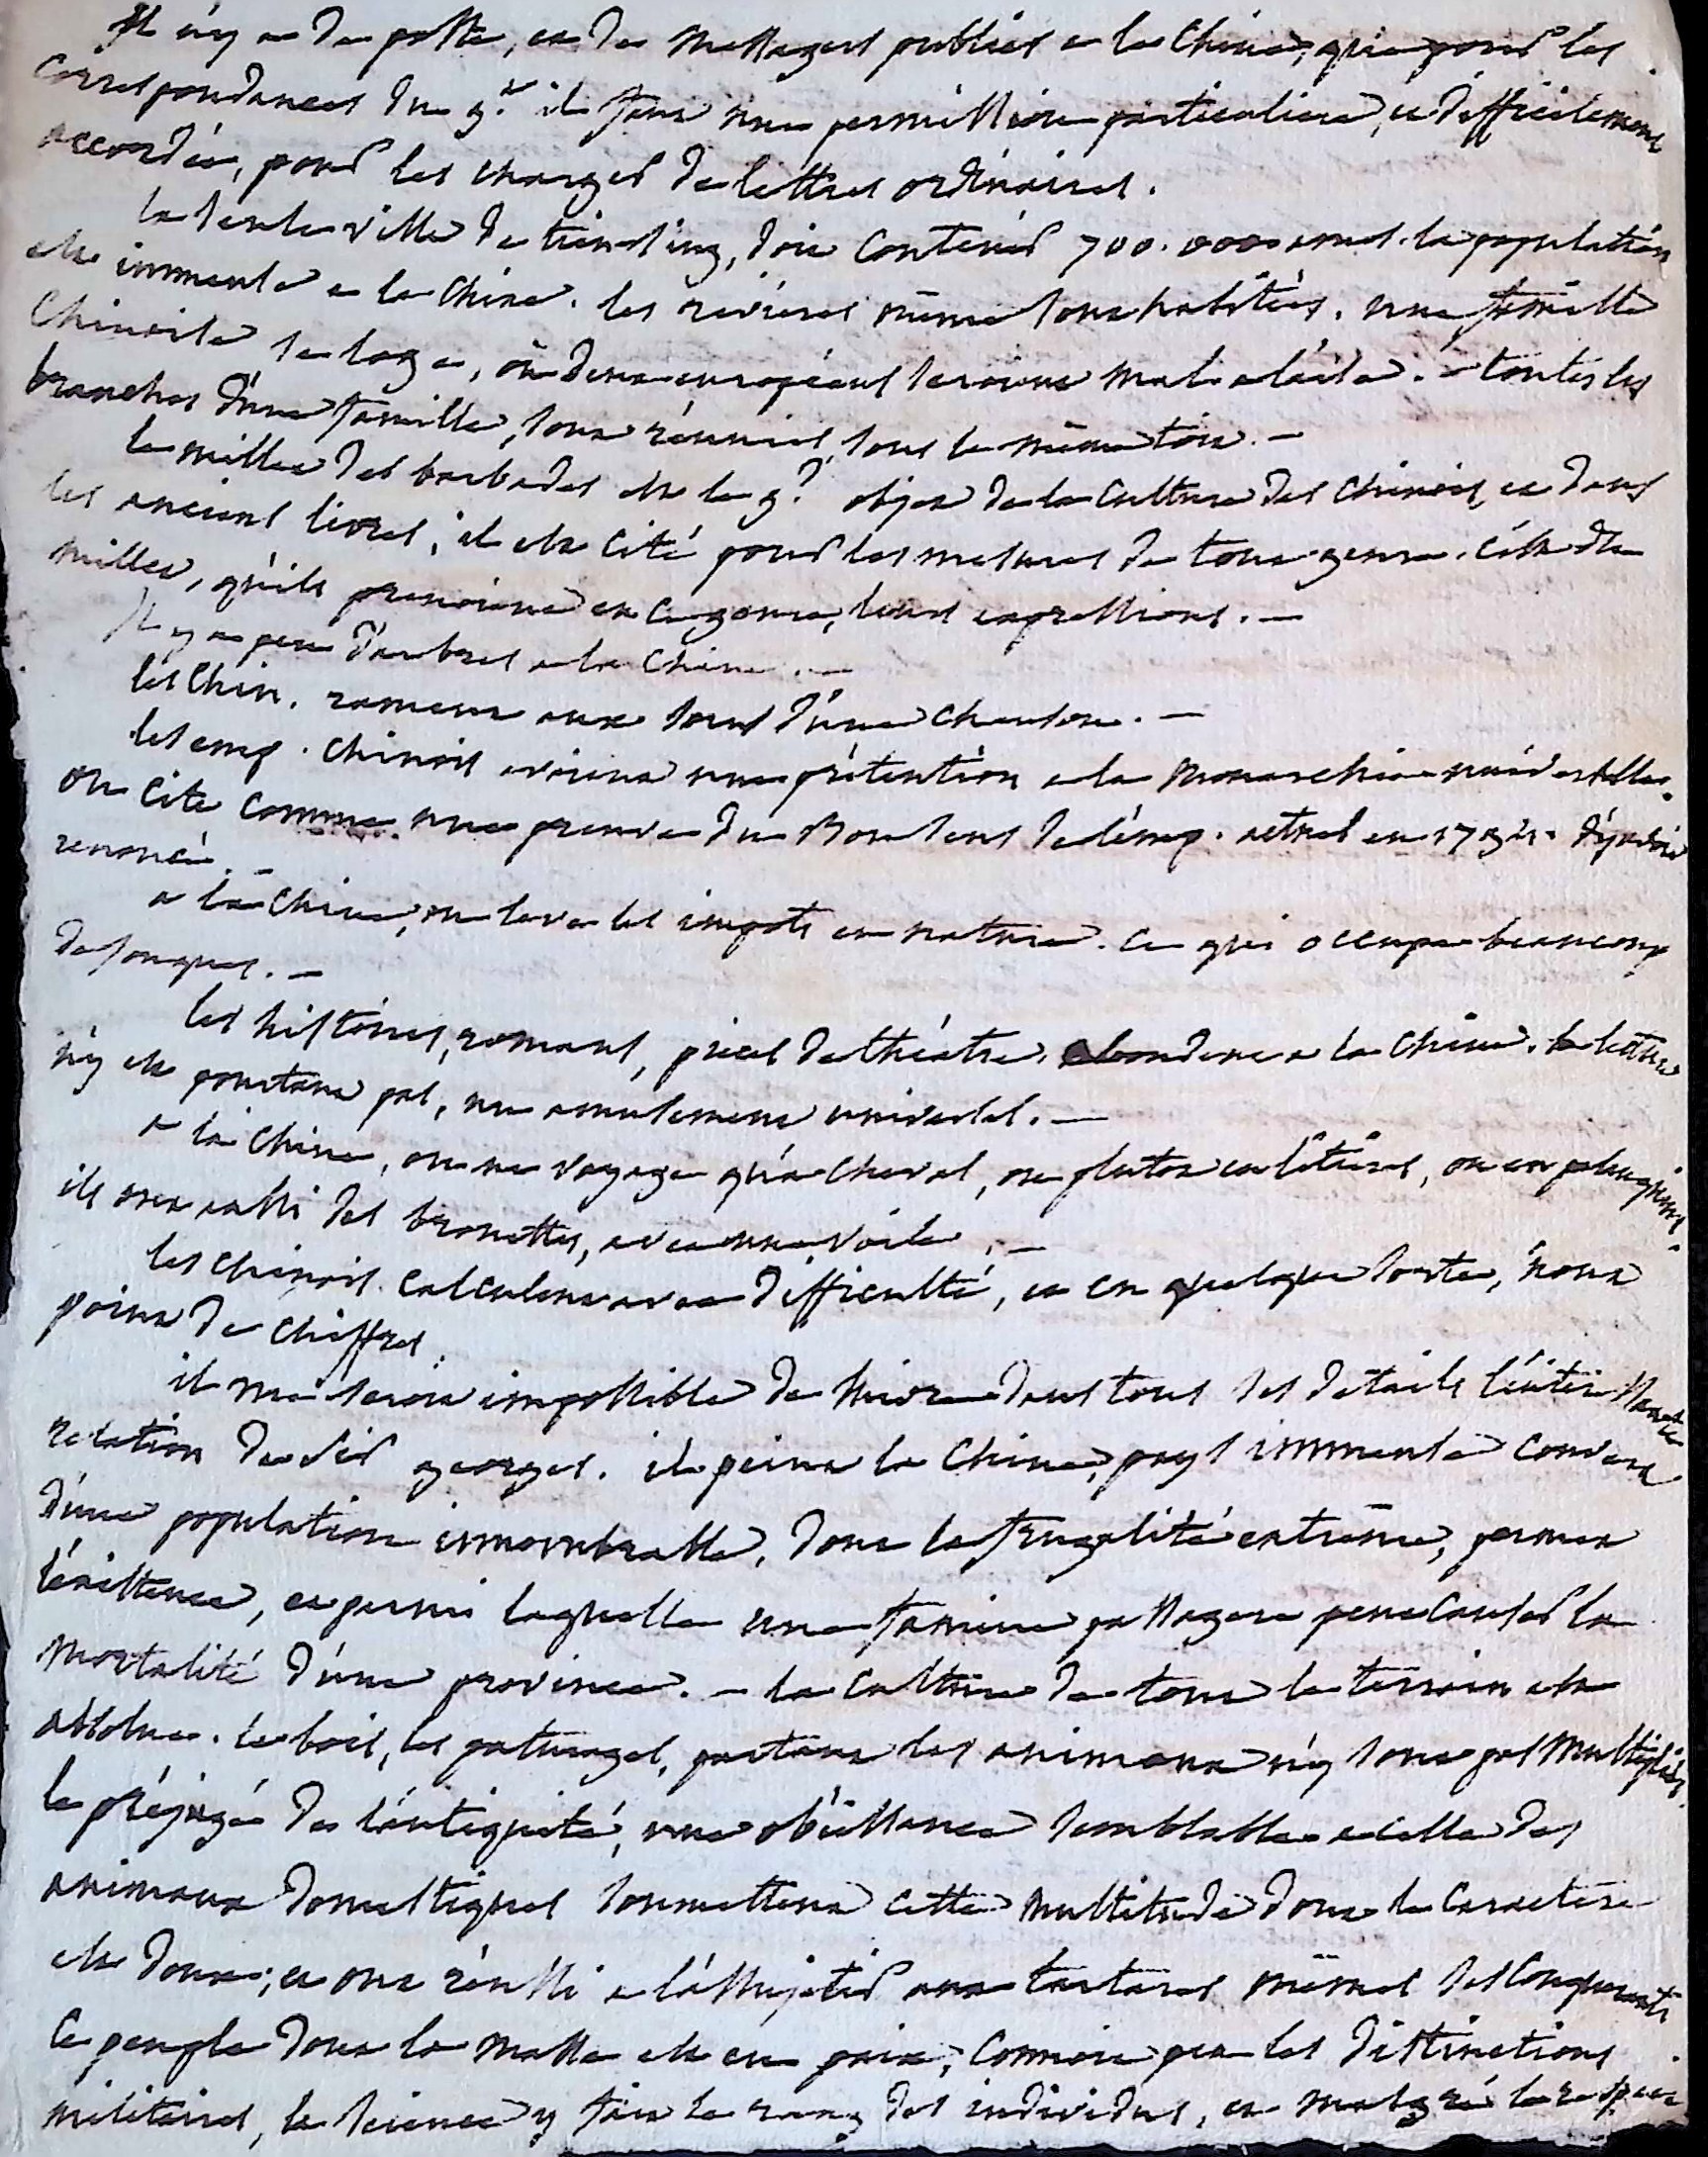 Il n'y a de poste, et de messagers publics a la Chine, que pour les
correspondances du g.t il faut une permission particuliere, et difficilement
accordée, pour les charges de lettres ordinaires.
la seule ville de tiensing, doit contenir 700.000 ames. la population
est immense a la Chine. les rivieres même sont habitées. une famille
Chinoise se loge, où deux européens seroient mal a l'aise. toutes les
branches d'une famille, sont réunies, sous le même toit. —
le millet des barbades est le g.d objet de la culture des Chinois, et dans
les anciens livres, il est cité pour les mesures de tout genre. c'est du
millet, qu'ils prenoient en ce genre, leurs expressions. —
Il y a peu d'arbres a la Chine. —
les Chin. rament aux sons d'une chanson. —
les emp. chinois avoient une prétention a la Monarchie universelle.
on cite comme une preuve du bon sens de l'emp. actuel en 1794. d'y avoir
renoncé. —
a la Chine, on leve les impots en nature. ce qui occupe beaucoup
de jonques. —
les histoires, romans, pieces de théatre, abondent a la Chine. la lecture
n'y est pourtant pas, un amusement universel. —
a la Chine, on ne voyage qu'a cheval, ou plutot en litieres, ou en palanquins.
ils ont aussi des brouettes, avec une voile. —
les chinois calculent avec difficulté, et en quelque sorte, n'ont
point de chiffres.
il me seroit impossible de suivre dans tous ses details l'intéressante
relation de Sir georges. il peint la Chine, pays immense couvert
d'une population innombrable, dont la frugalité extrême, permet
l'existence, et parmi laquelle une famine passagere peut causer la
mortalité d'une province. — la culture de tout le terrain est
absolue. les bois, les paturages, partant les animaux n'y sont pas multipliés.
le préjugé de l'antiquité, une obéissance semblable a celle des
animaux domestiques soumettent cette multitude dont le caractere
est doux; et ont réussi a l'assujetir aux tartares mêmes ses conquerants
ce peuple dont la masse est en paix, connoit peu les distinctions
militaires, la science y fait le rang des individus, et malgré le respect